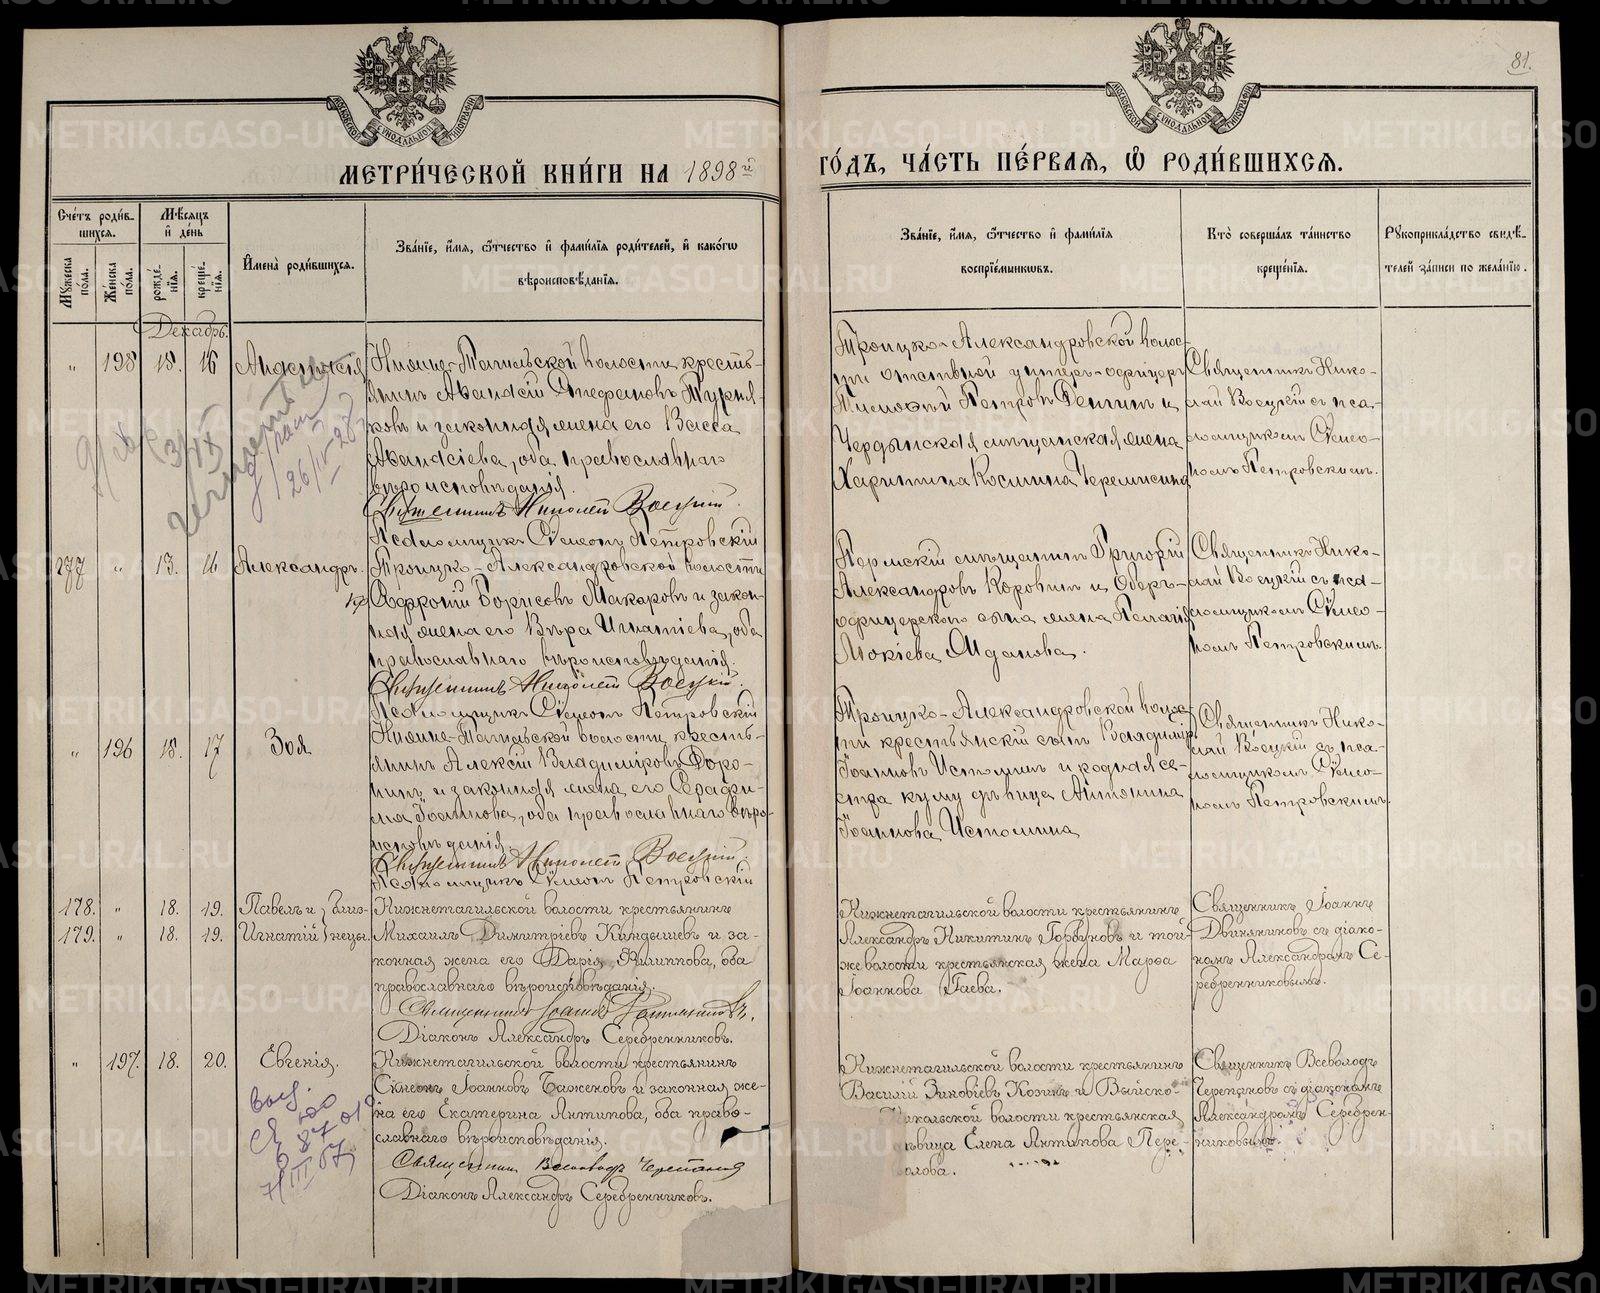 81.
МЕТРИ́ЧЕСКОЙ КНИ́ГИ НА 1898й
ГО́ДЪ, ЧА́СТЬ ПЕ́РВАЯ, Ѽ РОДИ́ВШИХСЯ.
Сче́тъ роди́в-
шихся.
Мѣ́сяцъ
и҆ де́нь
Мꙋ́жеска
по́ла.
Же́нска
по́ла.
рожде́-
нїя.
креще́-
нїя.
И҆мена̀ роди́вшихся.
Зва́нїе, и҆́мя, ѻ҆́тчество и҆ фами́лїя роди́телей, и҆ како́гѡ
вѣроисповѣ́данїя.
Зва́нїе, и҆́мя, ѻ҆́тчество и҆ фами́лїя
воспрїе́мникѡвъ.
Кто̀ соверша́лъ та́инство
креще́нїя.
Рꙋкоприкла́дство свидѣ́-
телей за́писи по жела́нїю.
Декабрь.
" 198 18. 16
Нижне-Тагильской волости, кресть-
янинъ Авансій Стефановъ Турня-
ковъ и законная жена его Васса
Авансіева, оба православнаго
вѣроисповѣданія.
Священникъ Николай Воецкій.
Псаломщикъ Сѵмеонъ Петровскій
Троицко-Александровской волос-
ти отставной унтеръ-офицеръ
Тимоѳей Петровъ Деминъ и
Чердынская мѣщанская жена
Харитина Космина Черемисина
Священникъ Нико-
лай Воецкій съ пса-
ломщикомъ Сѵмео-
номъ Петровскимъ.
177 " 13. 16 Александръ.
Троицко-Александровской волости
кр. Софроній Борисовъ Макаровъ и закон-
ная жена его Вѣра Игнатіева, оба
православнаго вѣроисповѣданія.
Священникъ Николай Воецкій.
Псаломщикъ Сѵмеонъ Петровскій
Пермскій мѣщанинъ Григорій
Александровъ Коровинъ и Оберъ-
офицерскаго сына жена Пелагія
Мокіева Жданова.
Священникъ Нико-
лай Воецкій съ пса-
ломщикомъ Сѵмео-
номъ Петровскимъ.
" 196 18. 17 Зоя
Нижне-Тагильской волости кресть-
янинъ Алексій Владиміровъ Доро-
нинъ и законная жена его Серафи-
ма Іоаннова, оба православнаго вѣро-
исповѣданія.
Священникъ Николай Воецкій.
Псаломщикъ Сѵмеонъ Петровскій
Троицко-Александровской волос-
ти крестьянскій сынъ Владиміръ
Іоанновъ Истоминъ и родная се-
стра куму дѣвица Антонина
Іоаннова Истомина
Священникъ Нико-
лай Воецкій съ пса-
ломщикомъ Сѵмео-
номъ Петровскимъ.
178. " 18. 19. Павелъ и } близ-
179. " 18. 19. Игнатій } нецы.
Нижнетагильской волости крестьянинъ
Михаилъ Димитріевъ Киндышевъ и за-
конная жена его Дарія Филиппова, оба
православнаго вѣроисповѣданія.
Священникъ Іоаннъ Двиняниновъ.
Діаконъ Александръ Серебренниковъ.
Нижнетагильской волости крестьянинъ
Александръ Никитинъ Горбуновъ и той-
же волости крестьянская жена Марѳа
Іоаннова Гаева.
Священникъ Іоаннъ
Двиняниновъ съ діако-
номъ Александромъ Се-
ребренниковымъ.
" 197. 18. 20. Евгенія.
Нижнетагильской волости крестьянинъ
Сѵмеонъ Іоанновъ Баженовъ и законная же-
на его Екатерина Антипова, оба право-
славнаго вѣроисповѣданія.
Священникъ Всеволодъ Черепановъ
Діаконъ Александръ Серебренниковъ.
Нижнетагильской волости крестьянинъ
Василій Зиновіевъ Козинъ и Выйско-
Никольской волости крестьянская
дѣвица Елена Антипова Пере-
лова.
Священникъ Всеволодъ
Черепановъ съ діакономъ
Александромъ Серебрен-
никовымъ.
METRIKI.GASO-URAL.RU